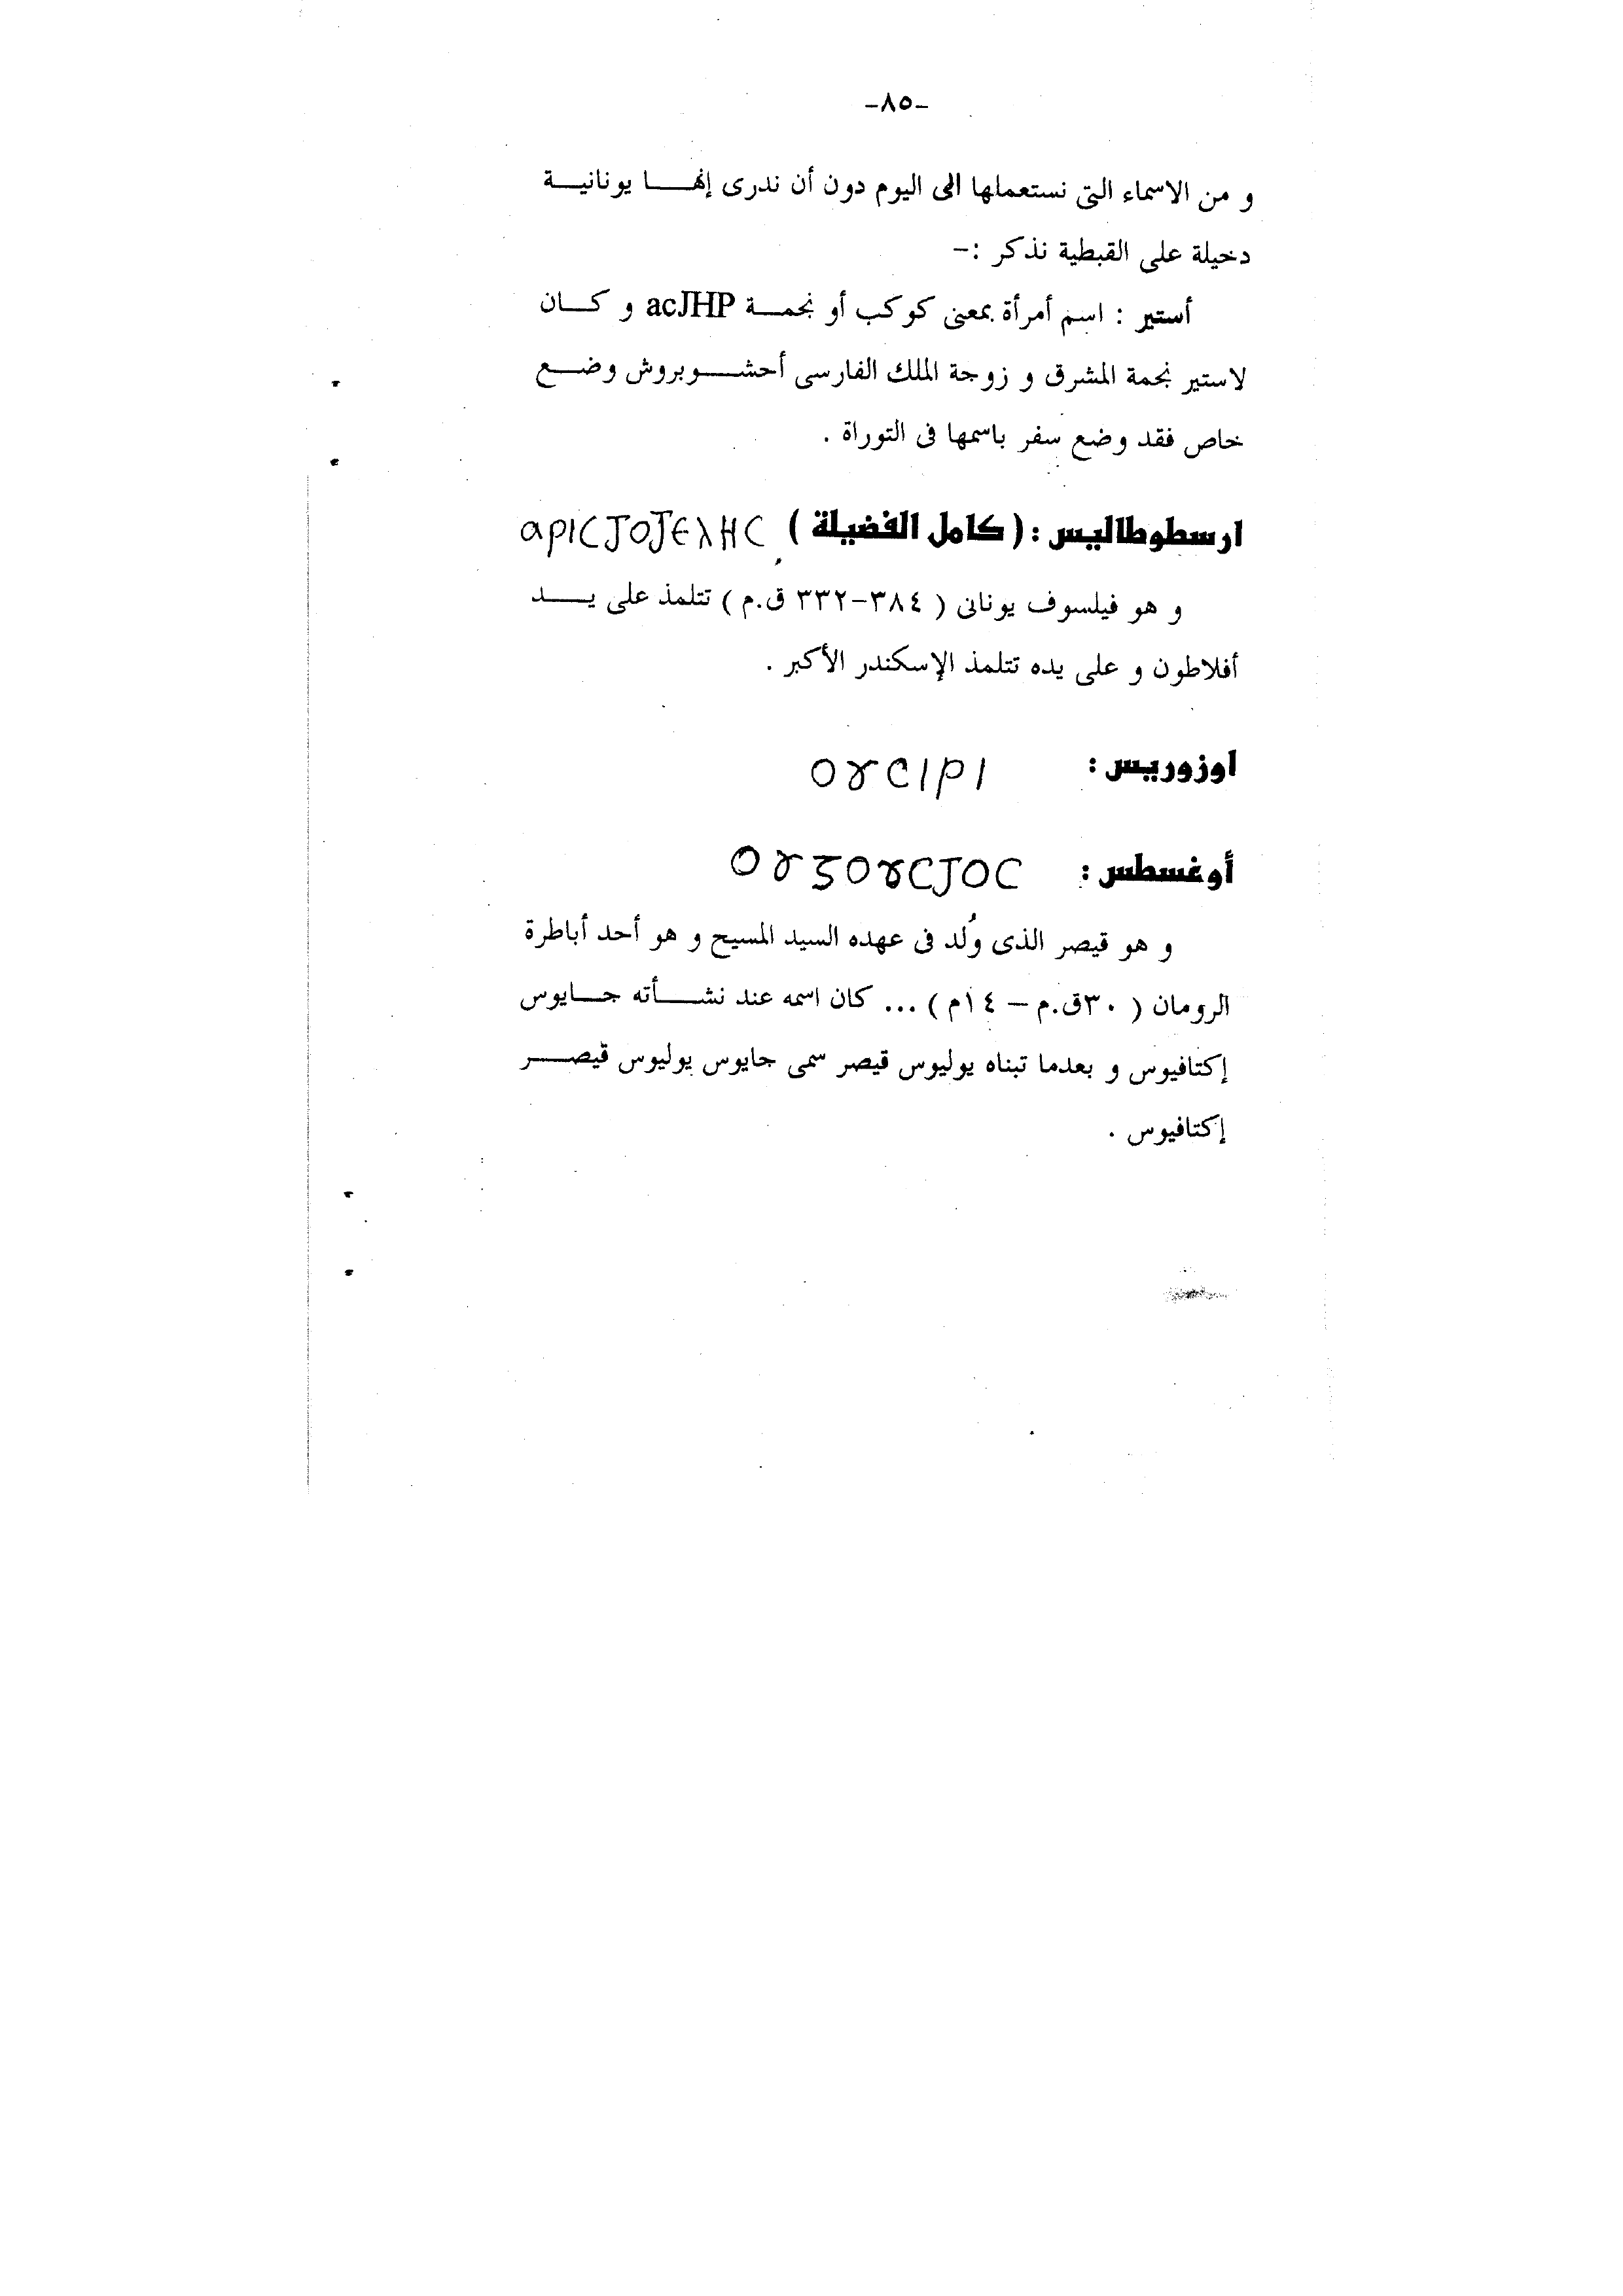 -٨٥-
و من الاسماء التى نستعملها الى اليوم دون أن ندرى إنها يونانية
دخيلة على القبطية نذكر :-
أستير : اسم أمرأة بمعنى كوكب أو نجمة acJHP و كان
لاستير نجمة المشرق و زوجة الملك الفارسى أحشوبروش وضع
خاص فقد وضع سفر باسمها فى التوراة .
ارسطوطاليس : ( كامل الفضيلة ) ⲁⲣⲓⲥⲧⲟⲧⲉⲗⲏⲥ
و هو فيلسوف يونانى ( ٣٨٤-٣٣٢ ق.م ) تتلمذ على يد
أفلاطون و على يده تتلمذ الإسكندر الأكبر .
اوزوريس : ⲟⲩⲥⲓⲣⲓ
أوغسطس : ⲟⲩⲅⲟⲩⲥⲧⲟⲥ
و هو قيصر الذى وُلد فى عهده السيد المسيح و هو أحد أباطرة
الرومان ( ٣٠ق.م – ١٤م ) ... كان اسمه عند نشأته جايوس
إكتافيوس و بعدما تبناه يوليوس قيصر سمى جايوس يوليوس قيصر
إكتافيوس .